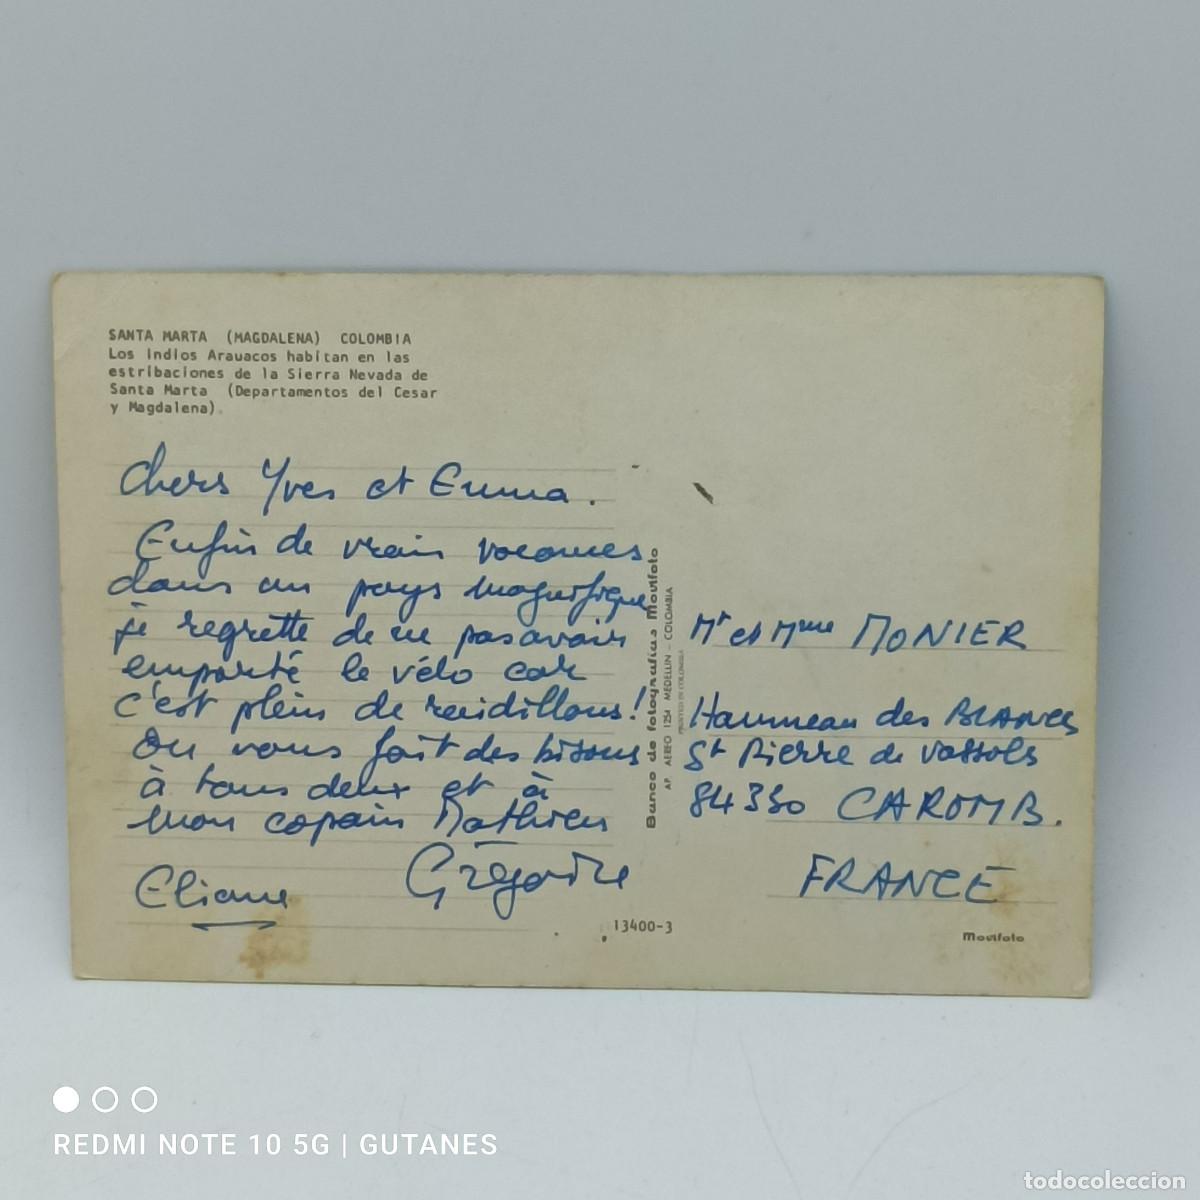 SANTA MARTA (MAGDALENA) COLOMBIA
Los Indios Arauacos habitan en las
estribaciones de la Sierra Nevada de
Santa Marta (Departamentos del Cesar
y Magdalena).
Chers Yves et Emma.
Enfin de vrais vacances
dans un pays magnifique
je regrette de ne pas avoir
emporté le vélo car
c'est plein de raidillons!
On vous fait des bisous
à tous deux et à
mon copain Mathieu
Eliane Grégoire
Banco de fotografias Movifoto
AP. AEREO 1254 MEDELLIN - COLOMBIA
PRINTED IN COLOMBIA
Mr et Mme MONIER
Hammeau des BLANCS
St Pierre de Vassols
84330 CAROMB.
FRANCE
13400-3
Movifoto
REDMI NOTE 10 5G | GUTANES
todocoleccion